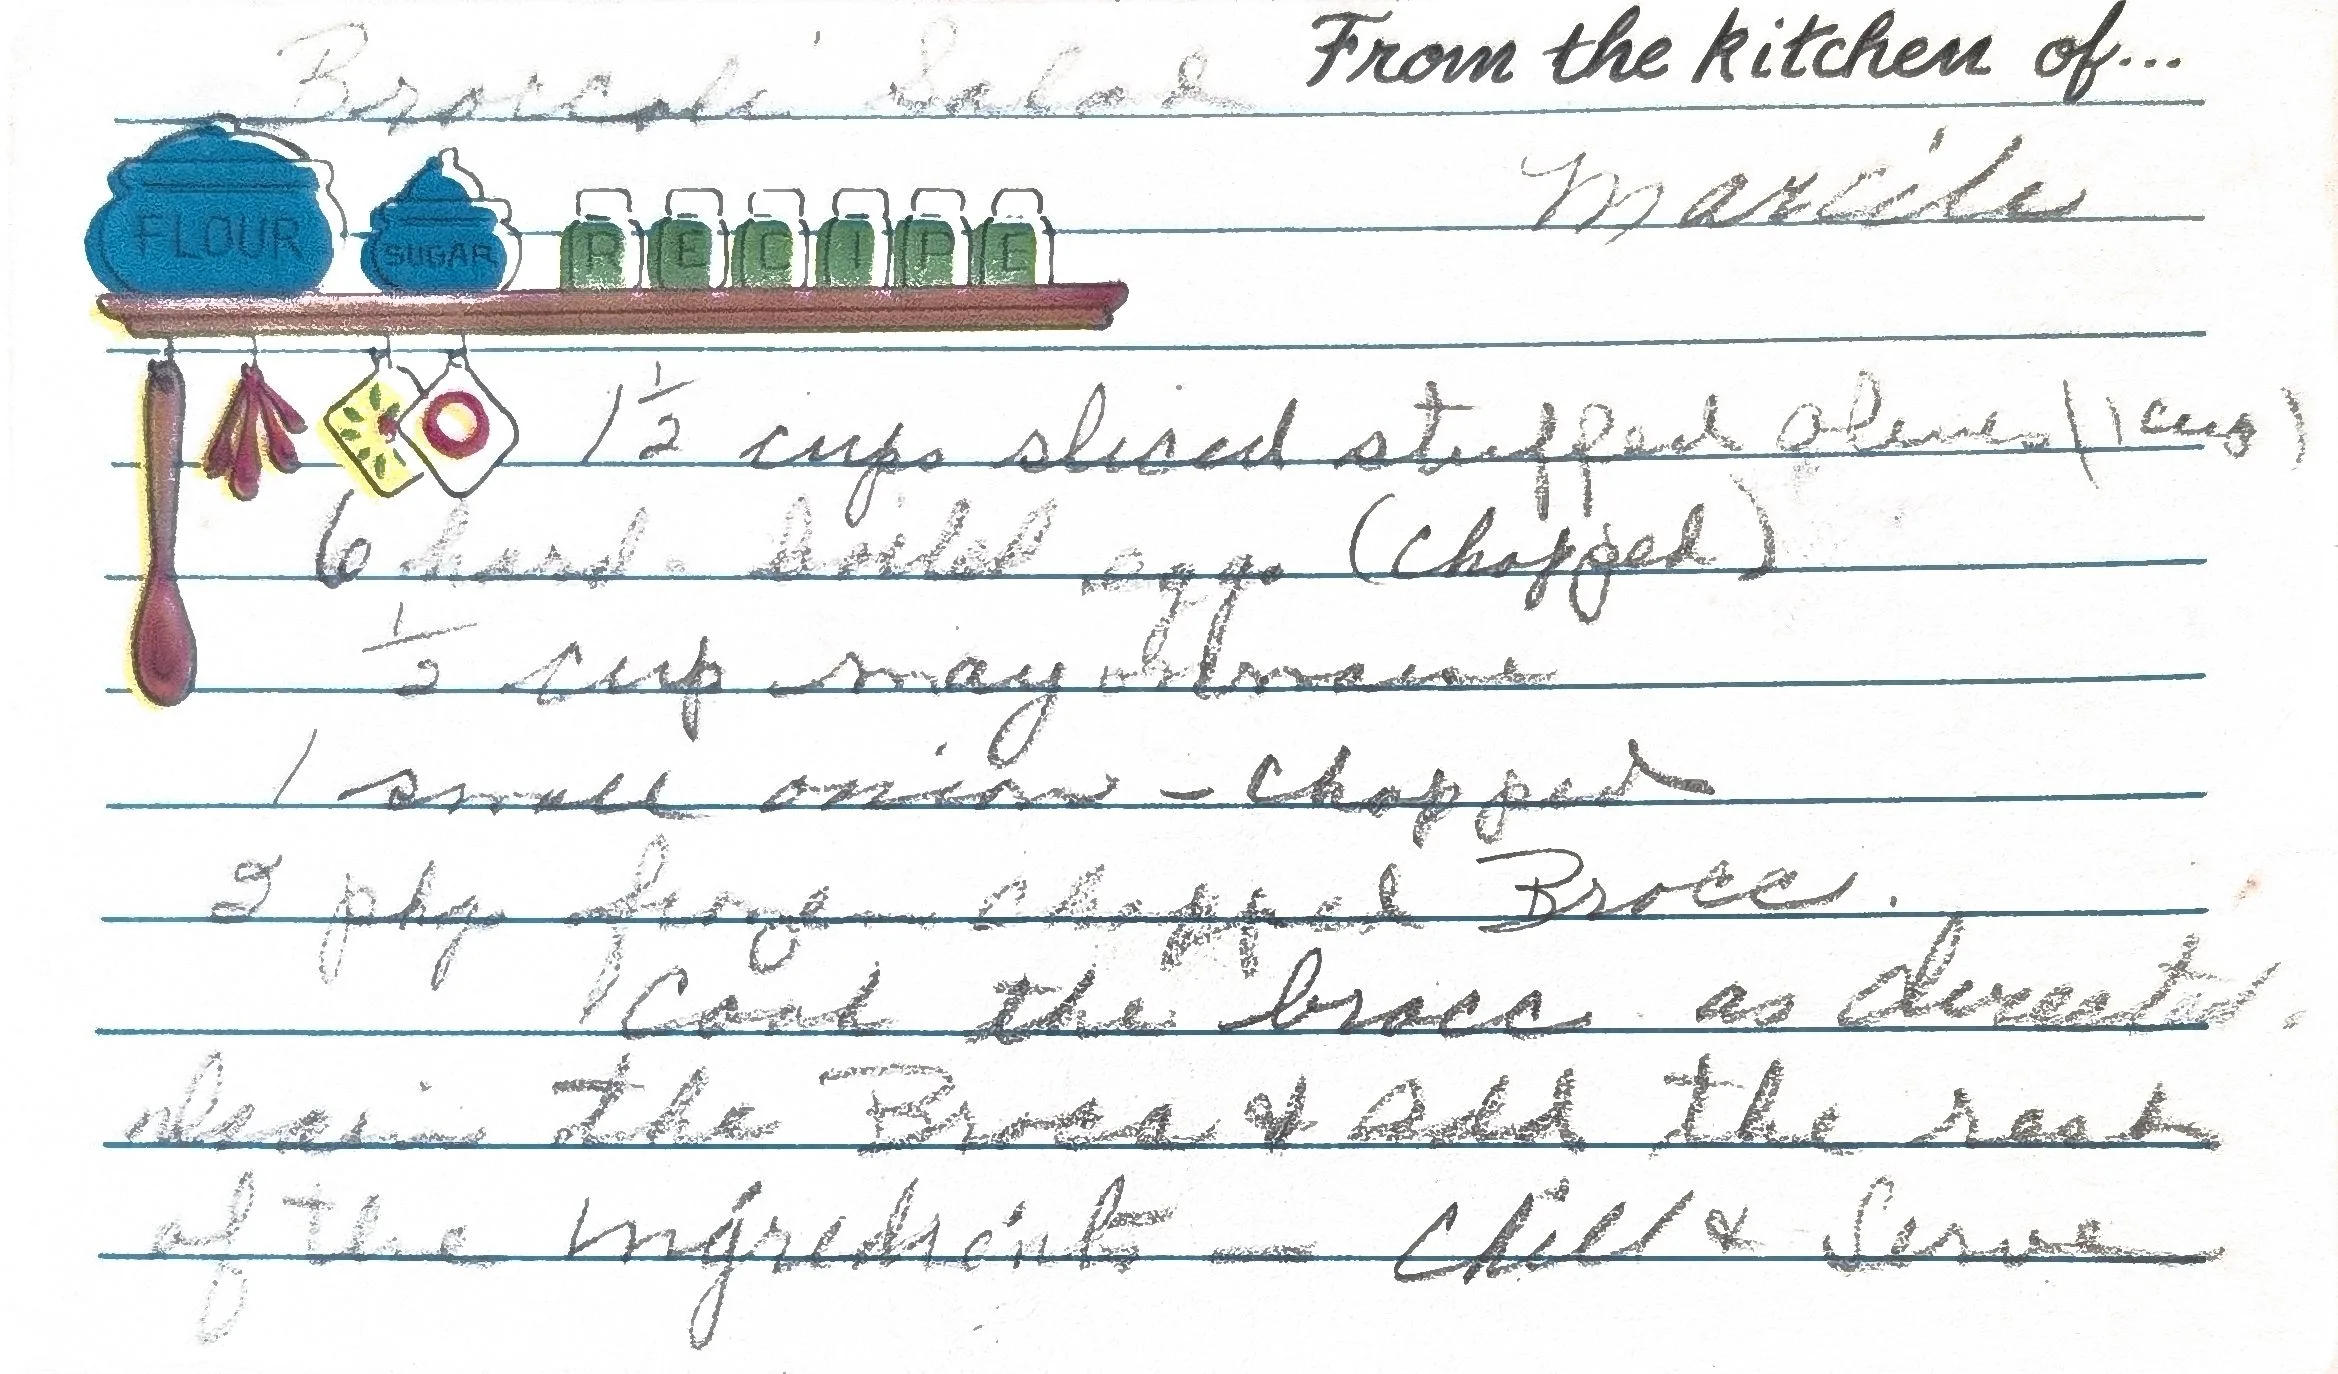 Broccoli Salad From the kitchen of...
Marcile
FLOUR SUGAR RECIPE
1 1/2 cups sliced stuffed olives (1 cup)
6 hard-boiled eggs (chopped)
1/2 cup mayonnaise
1 small onion - chopped
2 pkg frozen chopped Brocc.
Cook the brocc as directed.
drain the Brocc & add the rest
of the ingredients — chill & Serve